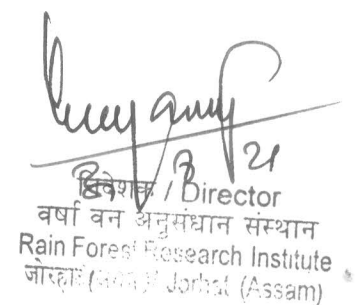 निदेशक / Director
वर्षा वन अनुसंधान संस्थान
Rain Forest Research Institute
जोरहाट (असम) Jorhat (Assam)